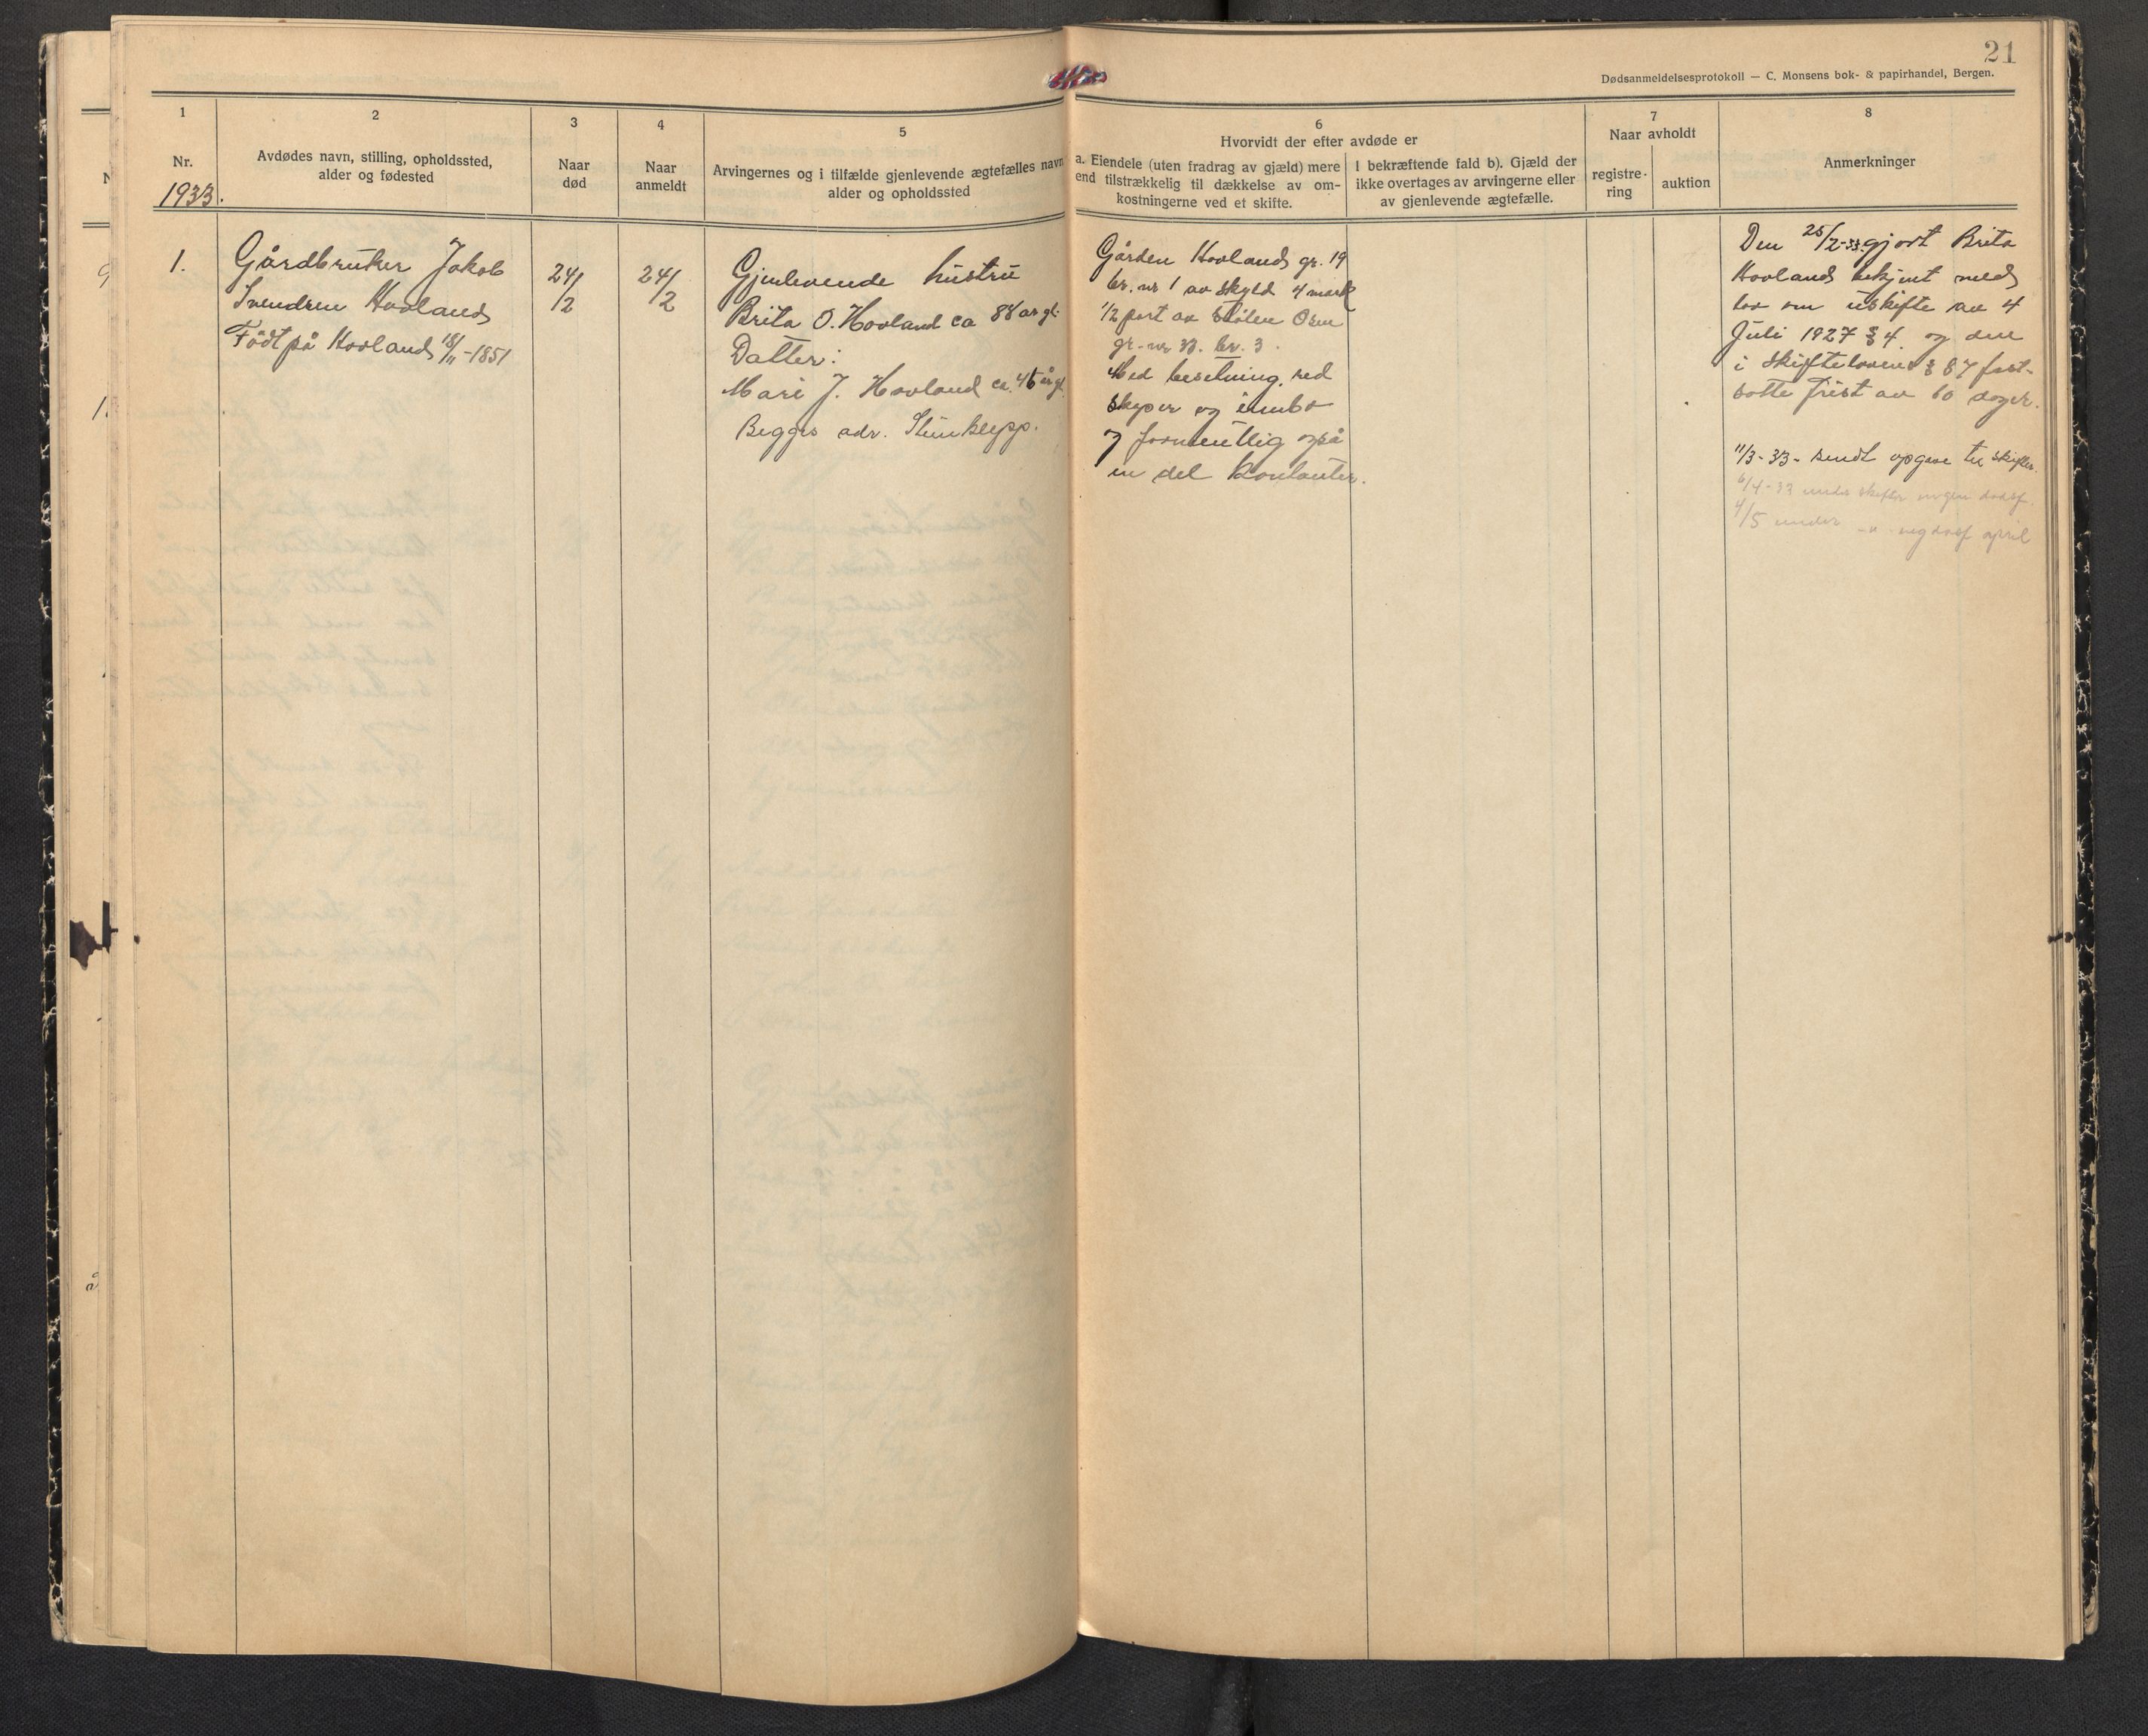 21
Dødsanmeldelsesprotokoll — C. Monsens bok- & papirhandel, Bergen.
1
Nr.
1933.
2
Avdødes navn, stilling, opholdssted,
alder og fødested
3
Naar
død
4
Naar
anmeldt
5
Arvingernes og i tilfælde gjenlevende ægtefælles navn
alder og opholdssted
6
Hvorvidt der efter avdøde er
a. Eiendele (uten fradrag av gjæld) mere
end tilstrækkelig til dækkelse av om-
kostningerne ved et skifte.
I bekræftende fald b). Gjæld der
ikke overtages av arvingerne eller
av gjenlevende ægtefælle.
7
Naar avholdt
registre-
ring
auktion
8
Anmerkninger
1.
Gårdbruker Jakob
Svendsen Hovland
Født på Hovland 18/11-1851
24/2
24/2
Gjenlevende hustru
Brita O. Hovland ca 88 år gl.
Datter:
Mari J. Hovland ca. 46 år gl.
Begges adr. Steinklepp.
Gården Hovland gr. 19
br. nr 1 av skyld 4 mark
1/2 part av stölen Osen
gr.-nr 33. br. 3.
Med besetning, red
skaper og innbo
og formentlig også
en del kontanter.
Den 25/2-33 gjort Brita
Hovland bekjent med
lov om uskifte av 4
Juli 1927 § 4 og den
i skifteloven § 87 fast-
satte frist av 60 dager.
11/3-33- sendt opgave til skifter.
6/4-33 skifter
4/5 under -"- april